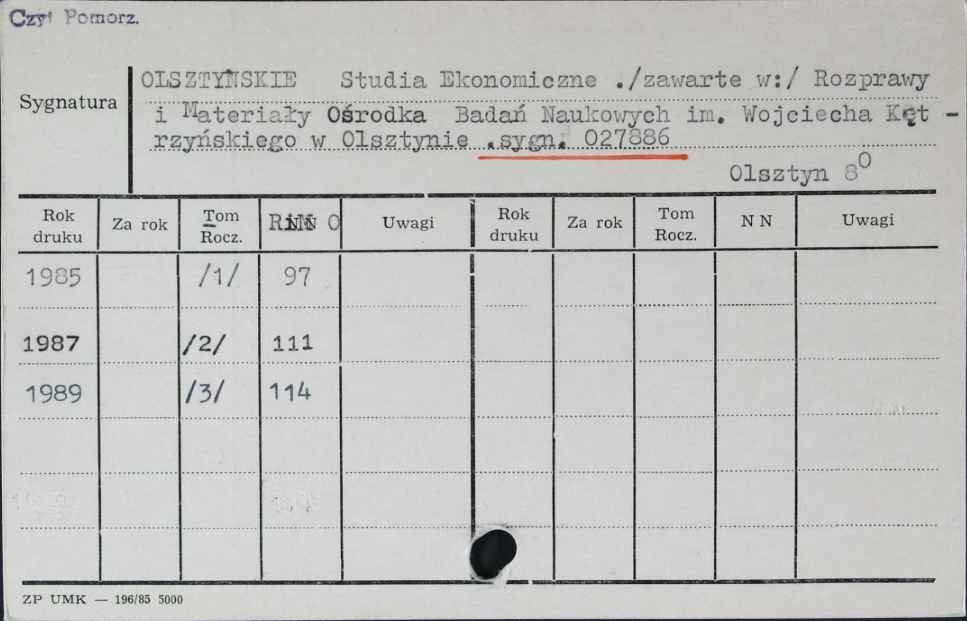 Czyt Pomorz.
Sygnatura
OLSZTYŃSKIE Studia Ekonomiczne ./zawarte w:/ Rozprawy
i Materiały Ośrodka Badań Naukowych im. Wojciecha Kęt -
rzyńskiego w Olsztynie .sygn. 027886
Olsztyn 8⁰
Rok druku Za rok Tom Rocz. NN O Uwagi Rok druku Za rok Tom Rocz. N N Uwagi
1985 /1/ 97
1987 /2/ 111
1989 /3/ 114
ZP UMK — 196/85 5000